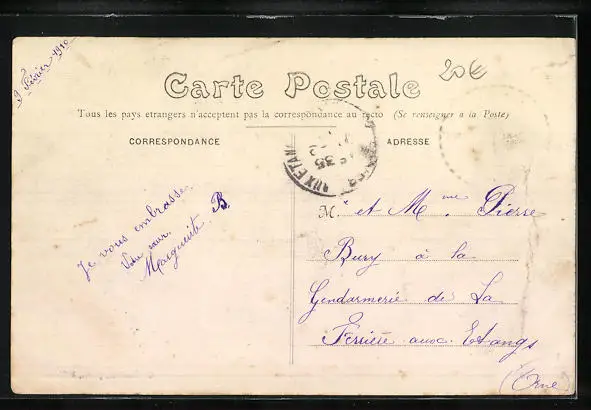 9 Février 1910
Carte Postale
20€
Tous les pays etrangers n'acceptent pas la correspondance au recto (Se renseigner à la Poste)
CORRESPONDANCE
ADRESSE
AUX ETAN
Je vous embrasse.
Votre sœur.
Marguerite B.
Mr et Mme Pierre
Bury à la
Gendarmerie de La
Ferrière aux Etangs
(Orne)